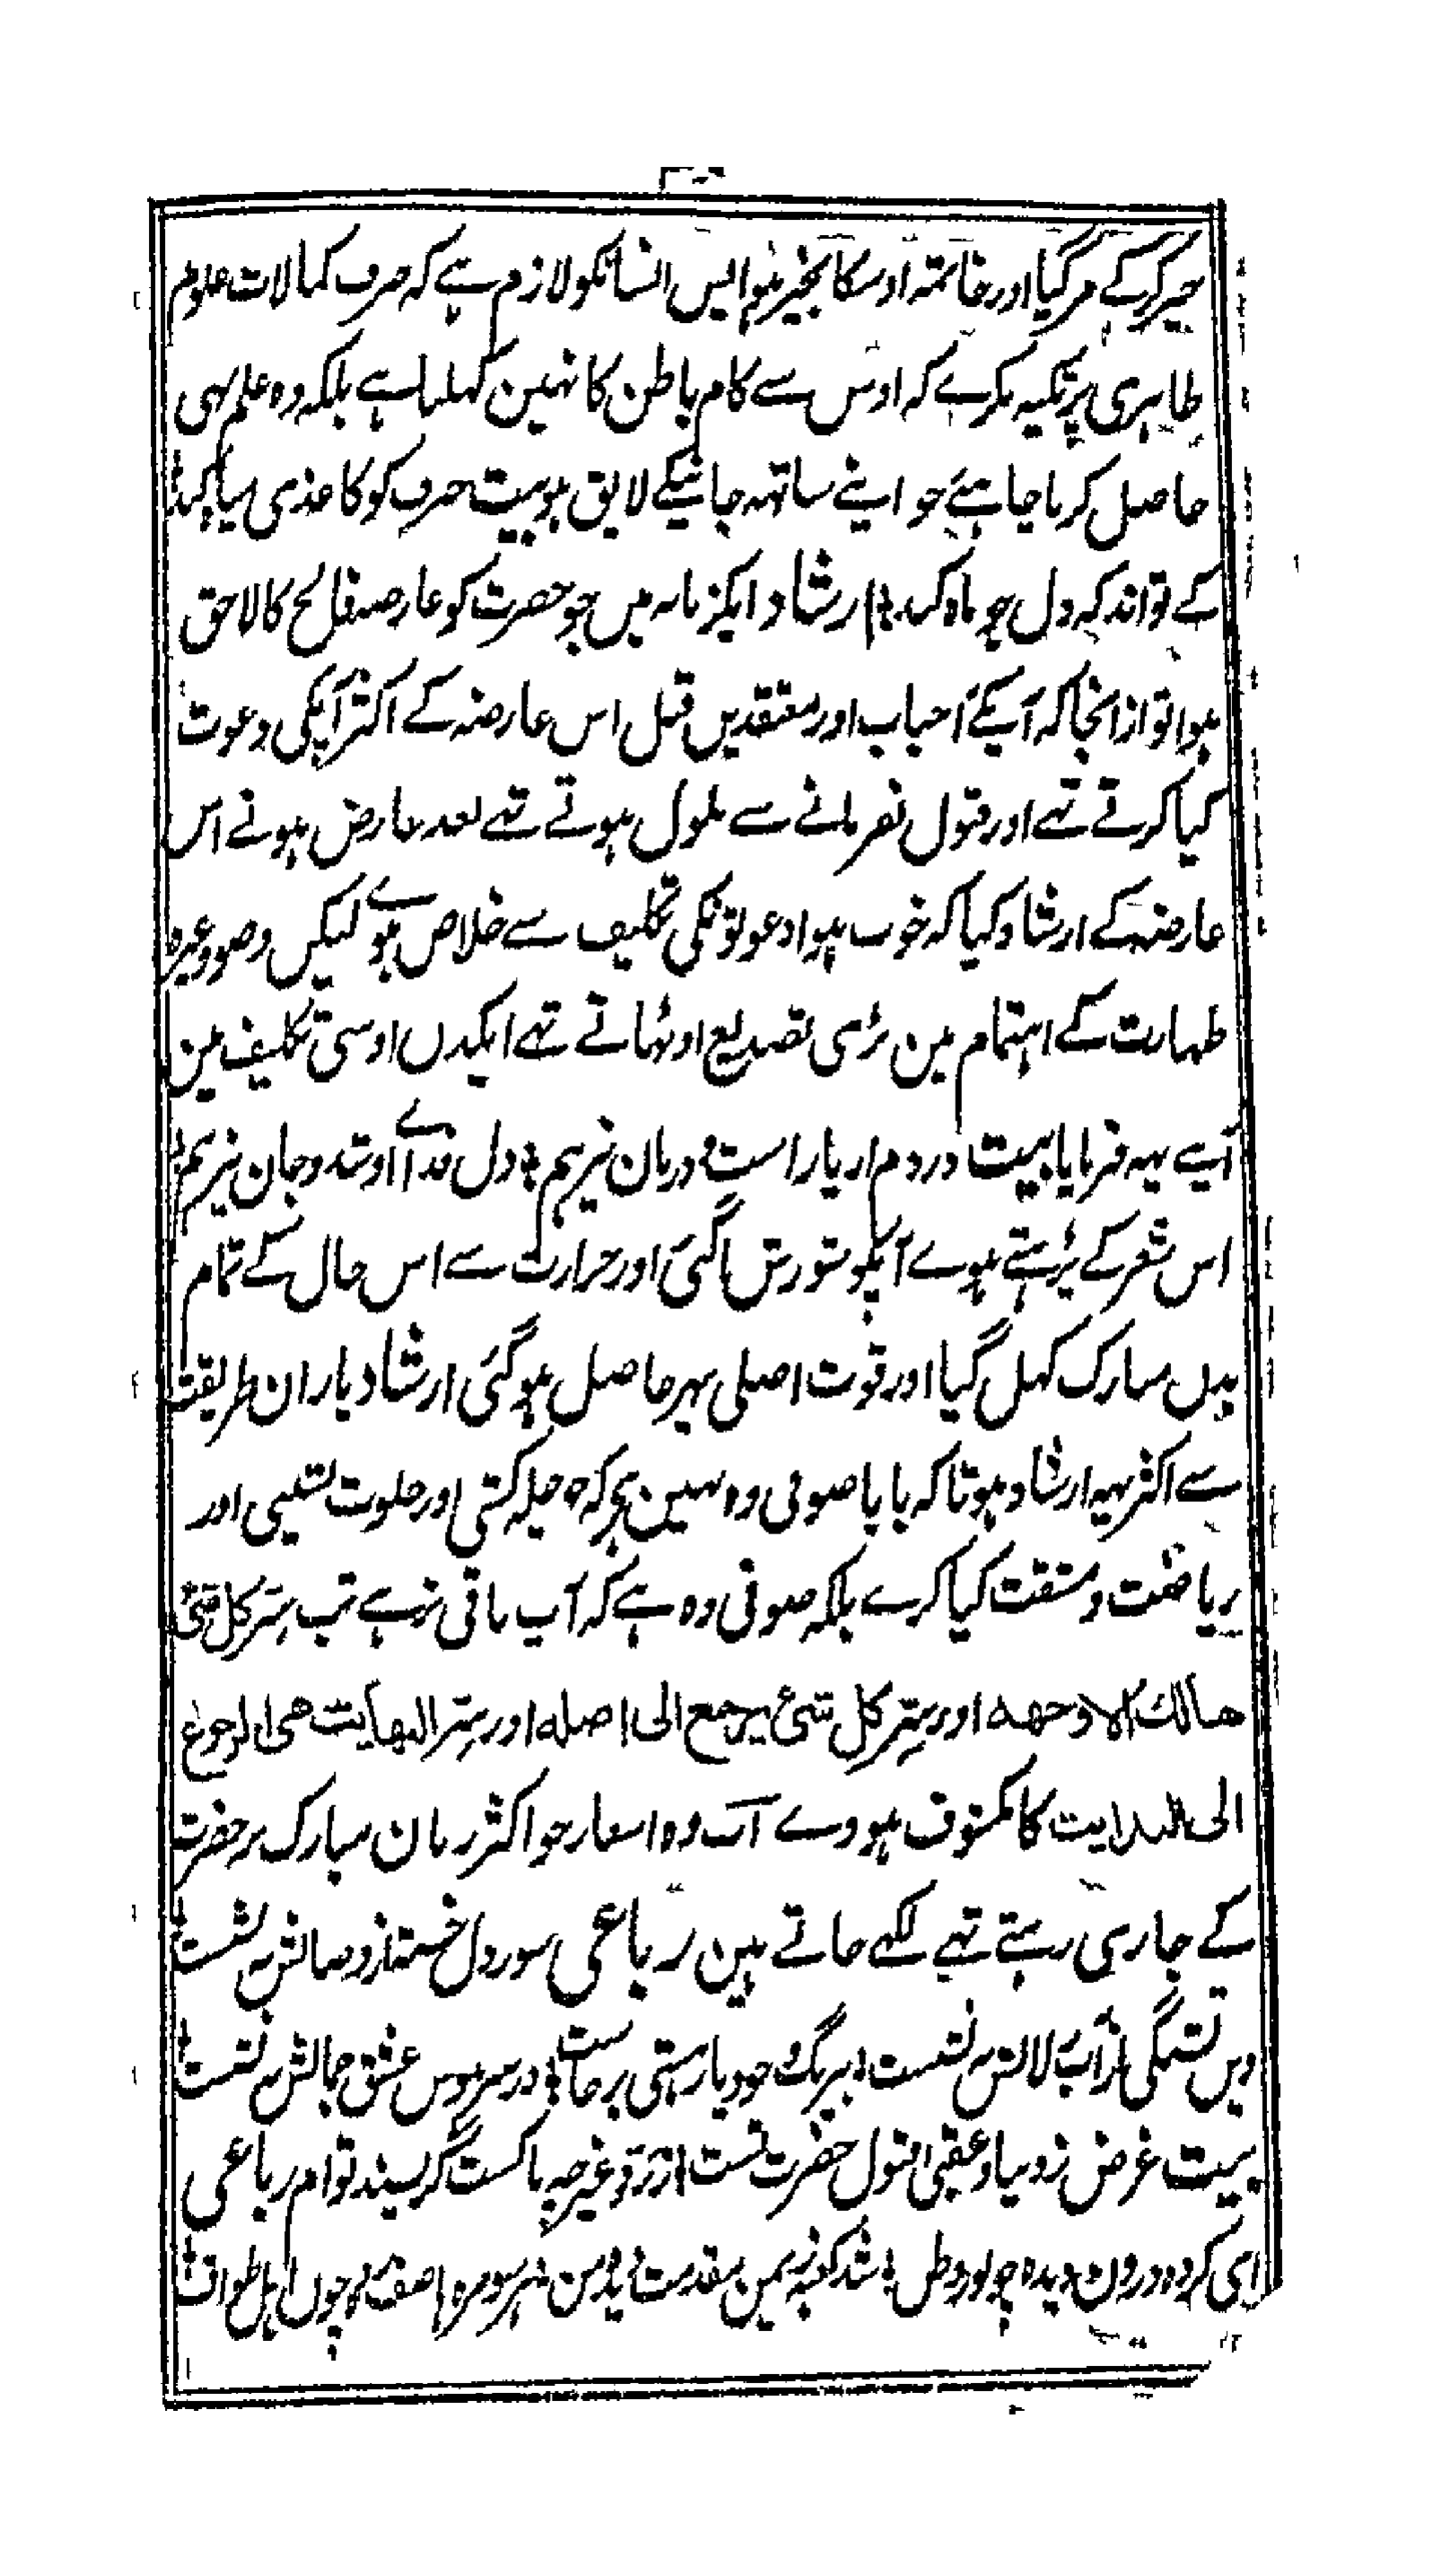 خیر کرکے مرگیا اور خاتمہ اوسکا بخیر ہوا پس انسانکو لازم ہے کہ صرف کمالات علوم
ظاہری پر تکیہ نکرے کہ اوس سے کام باطن کا نہین کہلتا ہے بلکہ وہ علم بہی
حاصل کرنا چاہئے جو اپنے ساتہہ جانیکے لایق ہو بیت حرف کو کاغذی سیاہ کند
کے تواند کہ دل چو ماہ کند ارشاد ایکزمانہ میں جو حضرت کو عارضہ فالج کا لاحق
ہوا تو ازانجا کہ آپکے احباب اور معتقدین قبل اس عارضہ کے اکثر آپکی دعوت
کیا کرتے تہے اور قبول نفرمانے سے ملول ہوتے تہے بعد عارض ہونے اس
عارضہ کے ارشاد کیا کہ خوب ہوا دعوتونکی تکلیف سے خلاص ہوے لیکن وضو وغیرہ
طہارت کے اہتمام مین بڑی تصدیع اوٹہاتے تہے ایکدن اوسی تکلیف مین
آپنے یہہ فرمایا بیت دردم از یار است و درمان نیز ہم دل فداے او شد و جان نیز ہم
اس شعر کے پڑہتے ہوے آپکو شورش آگئی اور حرارت سے اس حال کے تمام
بدن مبارک کہل گیا اور قوت اصلی پہر حاصل ہوگئی ارشاد یاران طریقت
سے اکثر یہہ ارشاد ہوتا کہ بابا صوفی وہ نہین ہے کہ چلہ کشی اور خلوت نشینی اور
ریاضت و مشقت کیا کرے بلکہ صوفی وہ ہے کہ آپ باقی نرہے تب سِتر کل شئ
ھالک الا وجھہ اور سِتر کل شئ یرجع الی اصلہ اور سِتر النھایت ھی الرجوع
الی البدایت کا مکشوف ہووے آب وہ اشعار جو اکثر زبان مبارک پر حضرت
کے جاری رہتے تہے لکہے جاتے ہین رباعی سوز دل خستہ از وصالش نہ نشست
وین تشنگی از آب زلالش نہ نشست برگ وجود یار ہستی برخاست در سر ہوس عشق جمالش نہ نشست
بیت غرض ز دنیا و عقبی قبول حضرت تست از تو غیر چہ باکست گر پسند توام رباعی
ای کردہ درون دیدہ چو نور وطن شد کعبہ ز یمن مقدمت من ہر سو مژہا صف چون اہل طواف